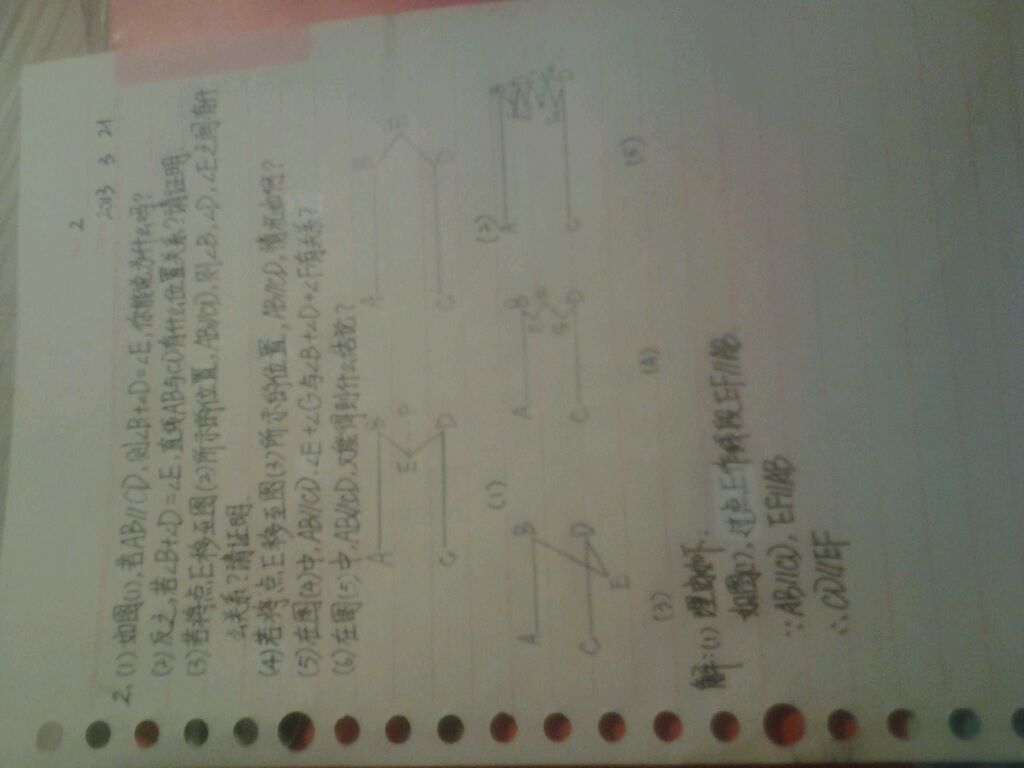 2
2013 3 21
2. (1) 如图(1), 若AB//CD, 则∠B+∠D=∠E, 你能说为什么吗?
(2) 反之, 若∠B+∠D=∠E, 直线AB与CD有什么位置关系? 请证明.
(3) 若将点E移至图(2)所示的位置, AB//CD, 则∠B, ∠D, ∠E之间有什
么关系? 请证明.
(4) 若将点E移至图(3)所示的位置, AB//CD, 情况如何?
(5) 在图(4)中, AB//CD, ∠E+∠G与∠B+∠D+∠F有关系?
(6) 在图(5)中, AB//CD, 又能得到什么结论?
A B
E F
C D
(1)
A B
E
C D
(2)
A B
C D
E
(3)
A B
E F
G
C D
(4)
A B
C D
(5)
解: (1) 理由如下.
如图(1), 过点E作线段EF//AB.
∵AB//CD, EF//AB
∴CD//EF